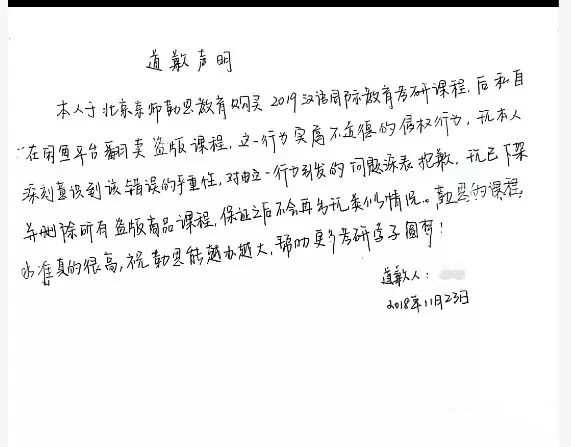 道歉声明
本人于北京京师勤思教育购买2019汉语国际教育考研课程，后私自
在闲鱼平台翻卖盗版课程，这一行为实属不道德的侵权行为，现本人
深刻意识到该错误的严重性，对由这一行为引发的问题深表抱歉，现已下架
并删除所有盗版商品课程，保证之后不会再出现类似情况。勤思的课程
水准真的很高，祝勤思能越办越大，帮助更多考研学子圆梦！
道歉人：
2018年11月23日